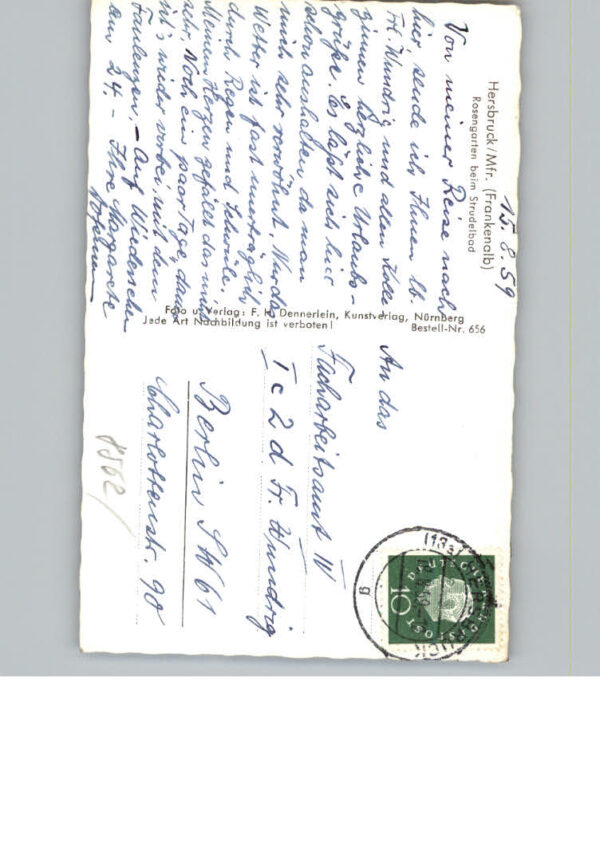 Hersbruck/Mfr. (Frankenalb)
Rosengarten beim Strudelbad
15.8.59
Von meiner Reise nach
hier sende ich Ihnen lb.
Frl. Wundrig und allen Kolle
ginnen herzliche Urlaubs-
grüße. Es läßt sich hier
schon aushalten da man
mich sehr verwöhnt. Nur das
Wetter ist fast unerträglich
durch Regen und Schwüle.
Meinem Herzen gefällt das nicht
sehr. Noch ein paar Tage, dann
ist's wieder vorbei mit dem
Faulenzen. - Auf Wiedersehen
am 24. - Ihre Margarete
Foto u. Verlag: F. H. Dennerlein, Kunstverlag, Nürnberg
Jede Art Nachbildung ist verboten!
Bestell-Nr. 656
An das
Facharbeitsamt IV
I c 2 d Fr. Wundrig
Berlin SW 61
Charlottenstr. 90
8562/
(13a) HERSBRUCK
g
DEUTSCHE BUNDESPOST
10